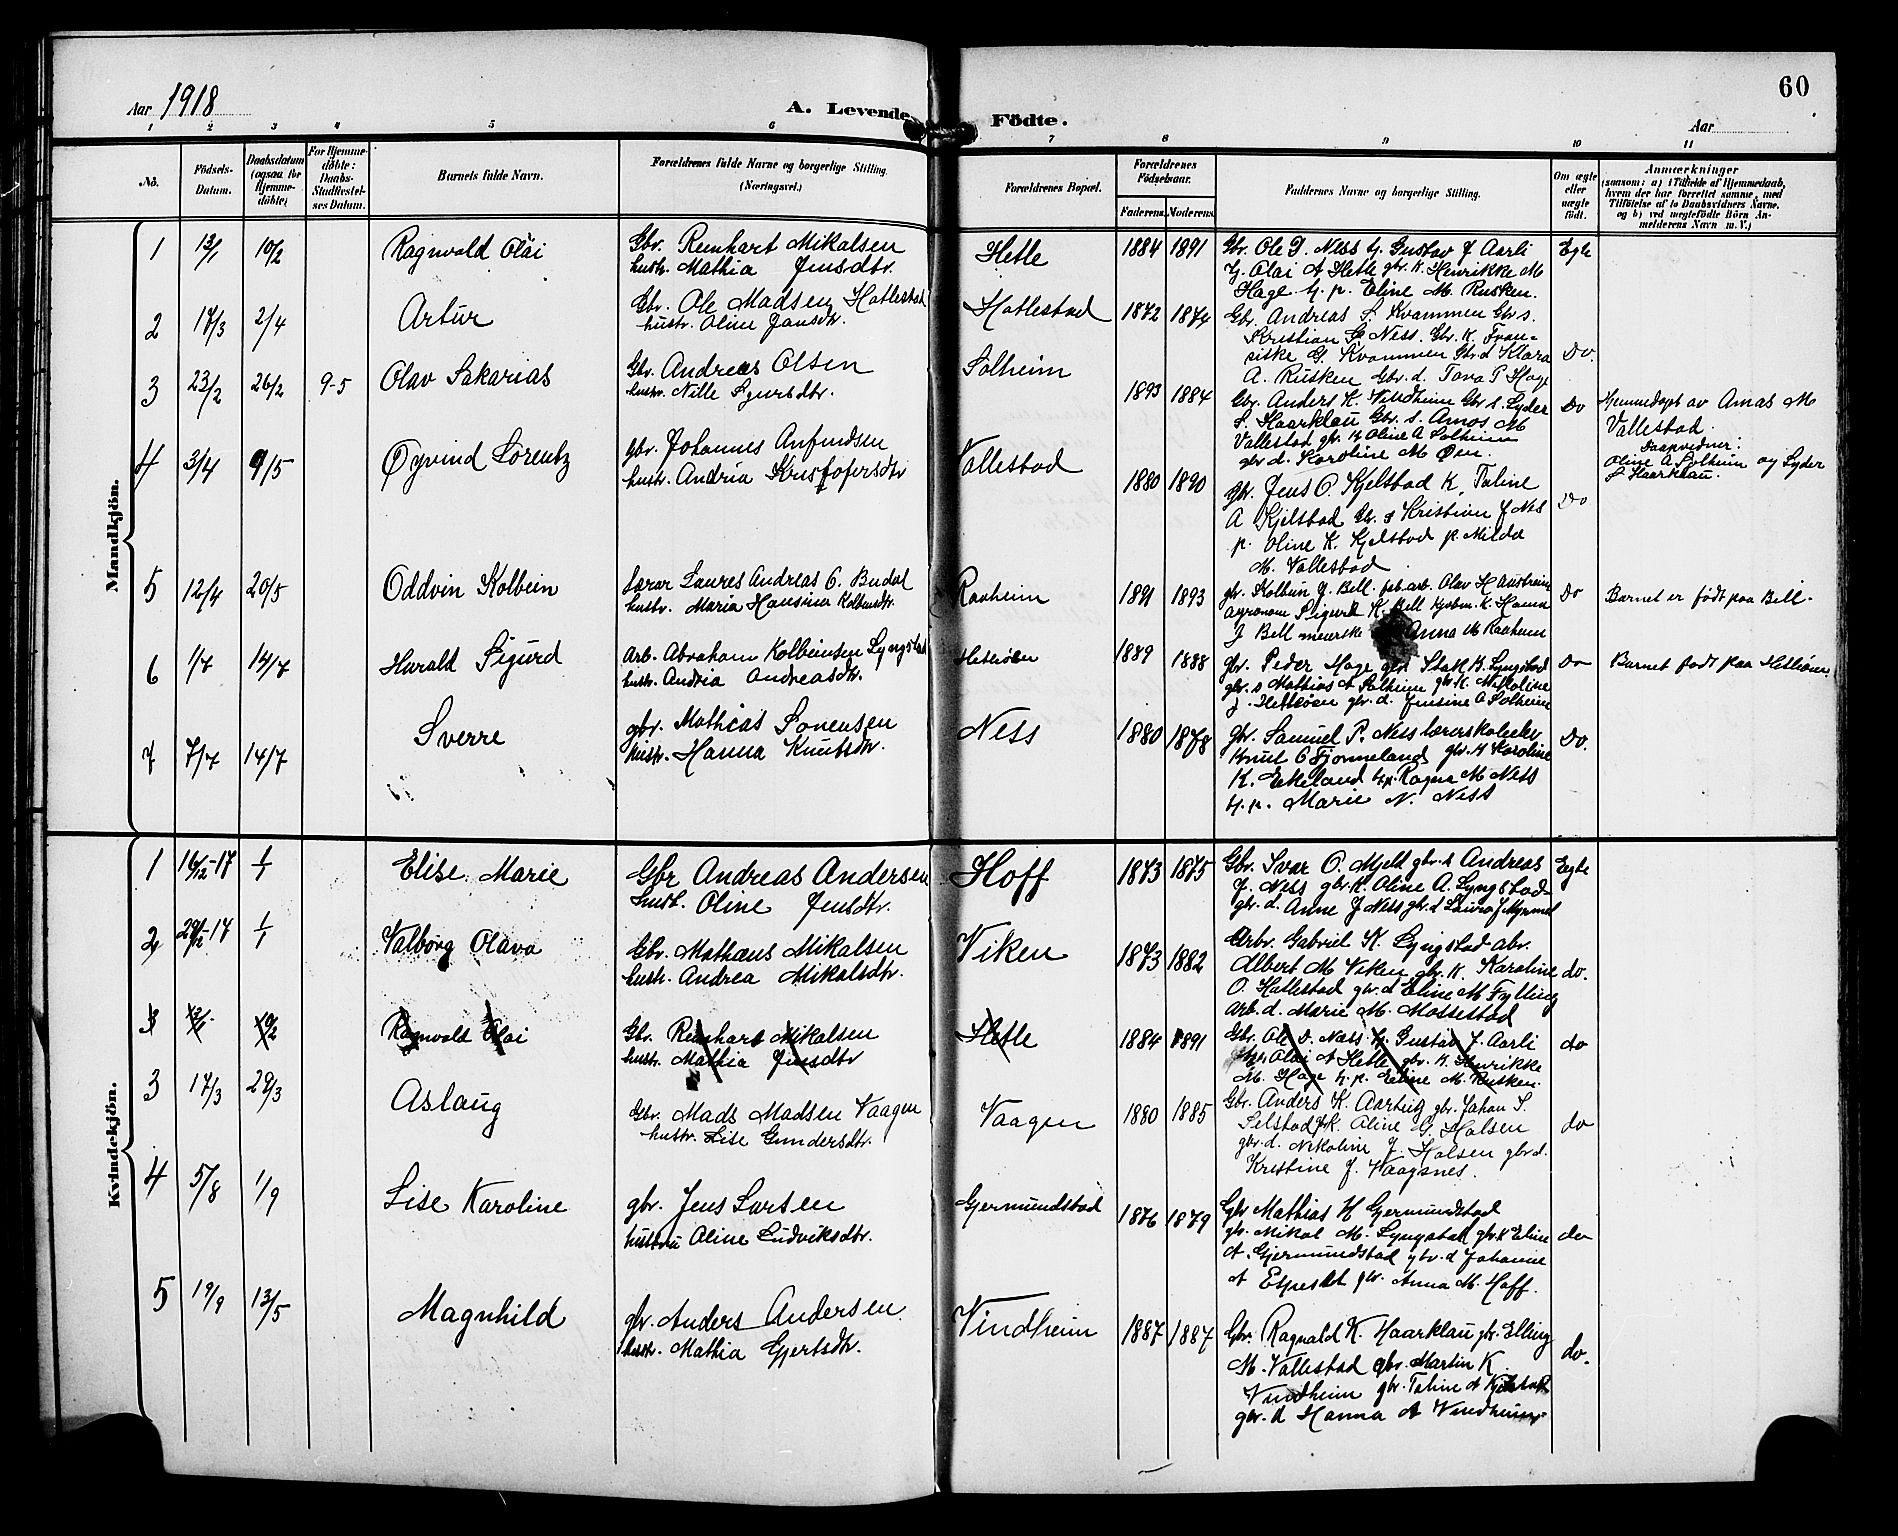 60
Aar 1918
A. Levende Födte.
Aar
1 2 3 4 5 6 7 8 9 10 11
No.
Födsels-Datum.
Daabsdatum (ogsaa for Hjemme-döbte)
For Hjemme-döbte: Daabs-Stadfæstel-ses Datum.
Barnets fulde Navn.
Forældrenes fulde Navne og borgerlige Stilling. (Næringsvei.)
Forældrenes Bopæl.
Forældrenes Födselsaar.
Faderens. Moderens.
Faddernes Navne og borgerlige Stilling.
Om ægte eller uægte födt.
Anmærkninger
(saasom: a) i Tilfælde af Hjemmedaab,
hvem der har forrettet samme, med
Tilföielse af to Daabsvidners Navne,
og b) ved uegtefödte Börn An-
melderens Navn m. V.)
Mandkjön.
1 13/1 10/2 Ragnvald Olai
Gbr. Reinhart Mikalsen
hustr. Mathia Jensdtr.
Hetle 1884 1891
Gbr. Ole D. Ness Gustav J Aarli
Olai A Hetle gbr. K. Henrikke M
Hage p. Eline M. Rusken.
Egte
2 17/3 2/4 Artur
Gbr. Ole Madsen Hatlestad
hustr. Oline Jansdtr.
Hatlestad 1872 1874
Gbr. Andreas S. Kvammen Gbr s.
Kristian Ness. Gbr. K. Fran-
siske G. Kvammen Gbr. d Klara
A. Rusken Gbr. d. Tora P Hage
Do.
3 23/2 26/2 9-5 Olav Sakarias
Gbr. Andreas Olsen
hustr. Nille Sjursdtr.
Solheim 1893 1884
Gbr. Anders K. Vindheim Gbr s. Lyder
S. Haarklau Gbr. s. Amos M
Vallestad gbr. K Oline A Solheim
gbr d. Karoline M Øen.
Do
Hjemmedøpt av Amas M
Vallestad.
Daapvidner:
Oline A Solheim og Lyder
S Haarklau.
4 3/4 9/5 Øyvind Lorentz
gbr. Johannes Anfindsen
hustr. Andria Kristofersdtr
Vallestad 1880 1890
gbr. Jens O. Kjelstad K. Taline
A Kjelstad Gbr. s Kristian J Nes
p. Oline K. Kjelstad p. Milda
M. Vallestad
Do
5 12/4 20/5 Oddvin Kolbein
Lærar Laures Andreas O. Budal
hustr. Maria Hansine Kolbeinsdtr.
Raaheim 1891 1893
gbr. Kolbein J. Bell. fab. arb. Olav H
agronom Sigurd K. Bell K. Hanna
J Bell meierske Anna M Raaheim
Do
Barnet er født paa Bell.
6 1/7 14/7 Harald Sigurd
Arb. Abraham Kolbeinsen Lyngstad
hustr. Andria Andreasdtr.
1889 1888
gbr. Peder Hage gbr Isak K. Lyngstad
gbr. s Mathias A Solheim gbr. K. Nikoline
J. gbr. d. Jensine A Solheim
Do
Barnet født paa
7 7/7 14/7 Sverre
gbr. Mathias Sørensen
hustr. Hanna Knutsdtr.
Ness 1880 1878
gbr. Samuel P. Ness lærerskoleelev
Knut O Fjørmeland gbr. K Karoline
K. Eikeland Ragna M Ness
p. Marie N. Ness
Do.
Kvindekjön.
1 16/12-17 1/1 Elise Marie
Gbr Andreas Andersen
hust. Oline Jensdtr.
Hoff 1873 1875
Gbr. Ivar O. Mjeld gbr. s Andreas
J. Ness gbr. K. Oline A. Lyngstad
gbr. d. Anne J Ness gbr. d Laura J Myrmel
Egte
2 29/12-17 1/1 Valborg Olava
Gbr. Mathæus Mikalsen
hustr. Andrea Mikalsdtr.
Viken 1873 1882
Arbr. Gabriel K. Lyngstad abr.
Albert M Viken gbr. K. Karoline
O. Hatlestad gbr. d Eline M Fylling
arb. d. Marie M. Mossestad
do.
3 13/1 10/2 Ragnvald Olai
Gbr. Reinhart Mikalsen
hustr. Mathia Jensdtr
Hetle 1884 1891
Gbr. Ole D. Ness Gustav J. Aarli
Olai A Hetle gbr. K. Henrikke
M. Hage p. Eline M. Rusken.
do
3 17/3 29/3 Aslaug
Gbr. Mads Madsen Vaagen
hustr. Lise Gundersdtr.
Vaagen 1880 1885
Gbr. Anders K. Aartug gbr. Johan S.
Selstad K. Aline G. Halsen
gbr. d. Nikoline J. Halsen gbr d.
Kristine J. Vaagsnes.
do
4 5/8 1/9 Lise Karoline
gbr. Jens Larsen
hustru Aline Ludviksdtr.
Gjermundstad 1876 1879
Gbr Mathias H Gjermundstad
gbr. Mikal M. Lyngstad gbr. K Eline
A. Gjermundstad gbr. d Johanne
A Espeset gbr. Anna M. Hoff.
do
5 19/9 13/5 Magnhild
gbr. Anders Andersen
hustr. Mathia Gjertsdtr.
Vindheim 1887 1887
Gbr. Ragnald K. Haarklau gbr. Elling
M. Vallestad gbr. Martin K
Vindheim gbr. Taline A Kjelstad
gbr. d Hanna A Vindheim
do.